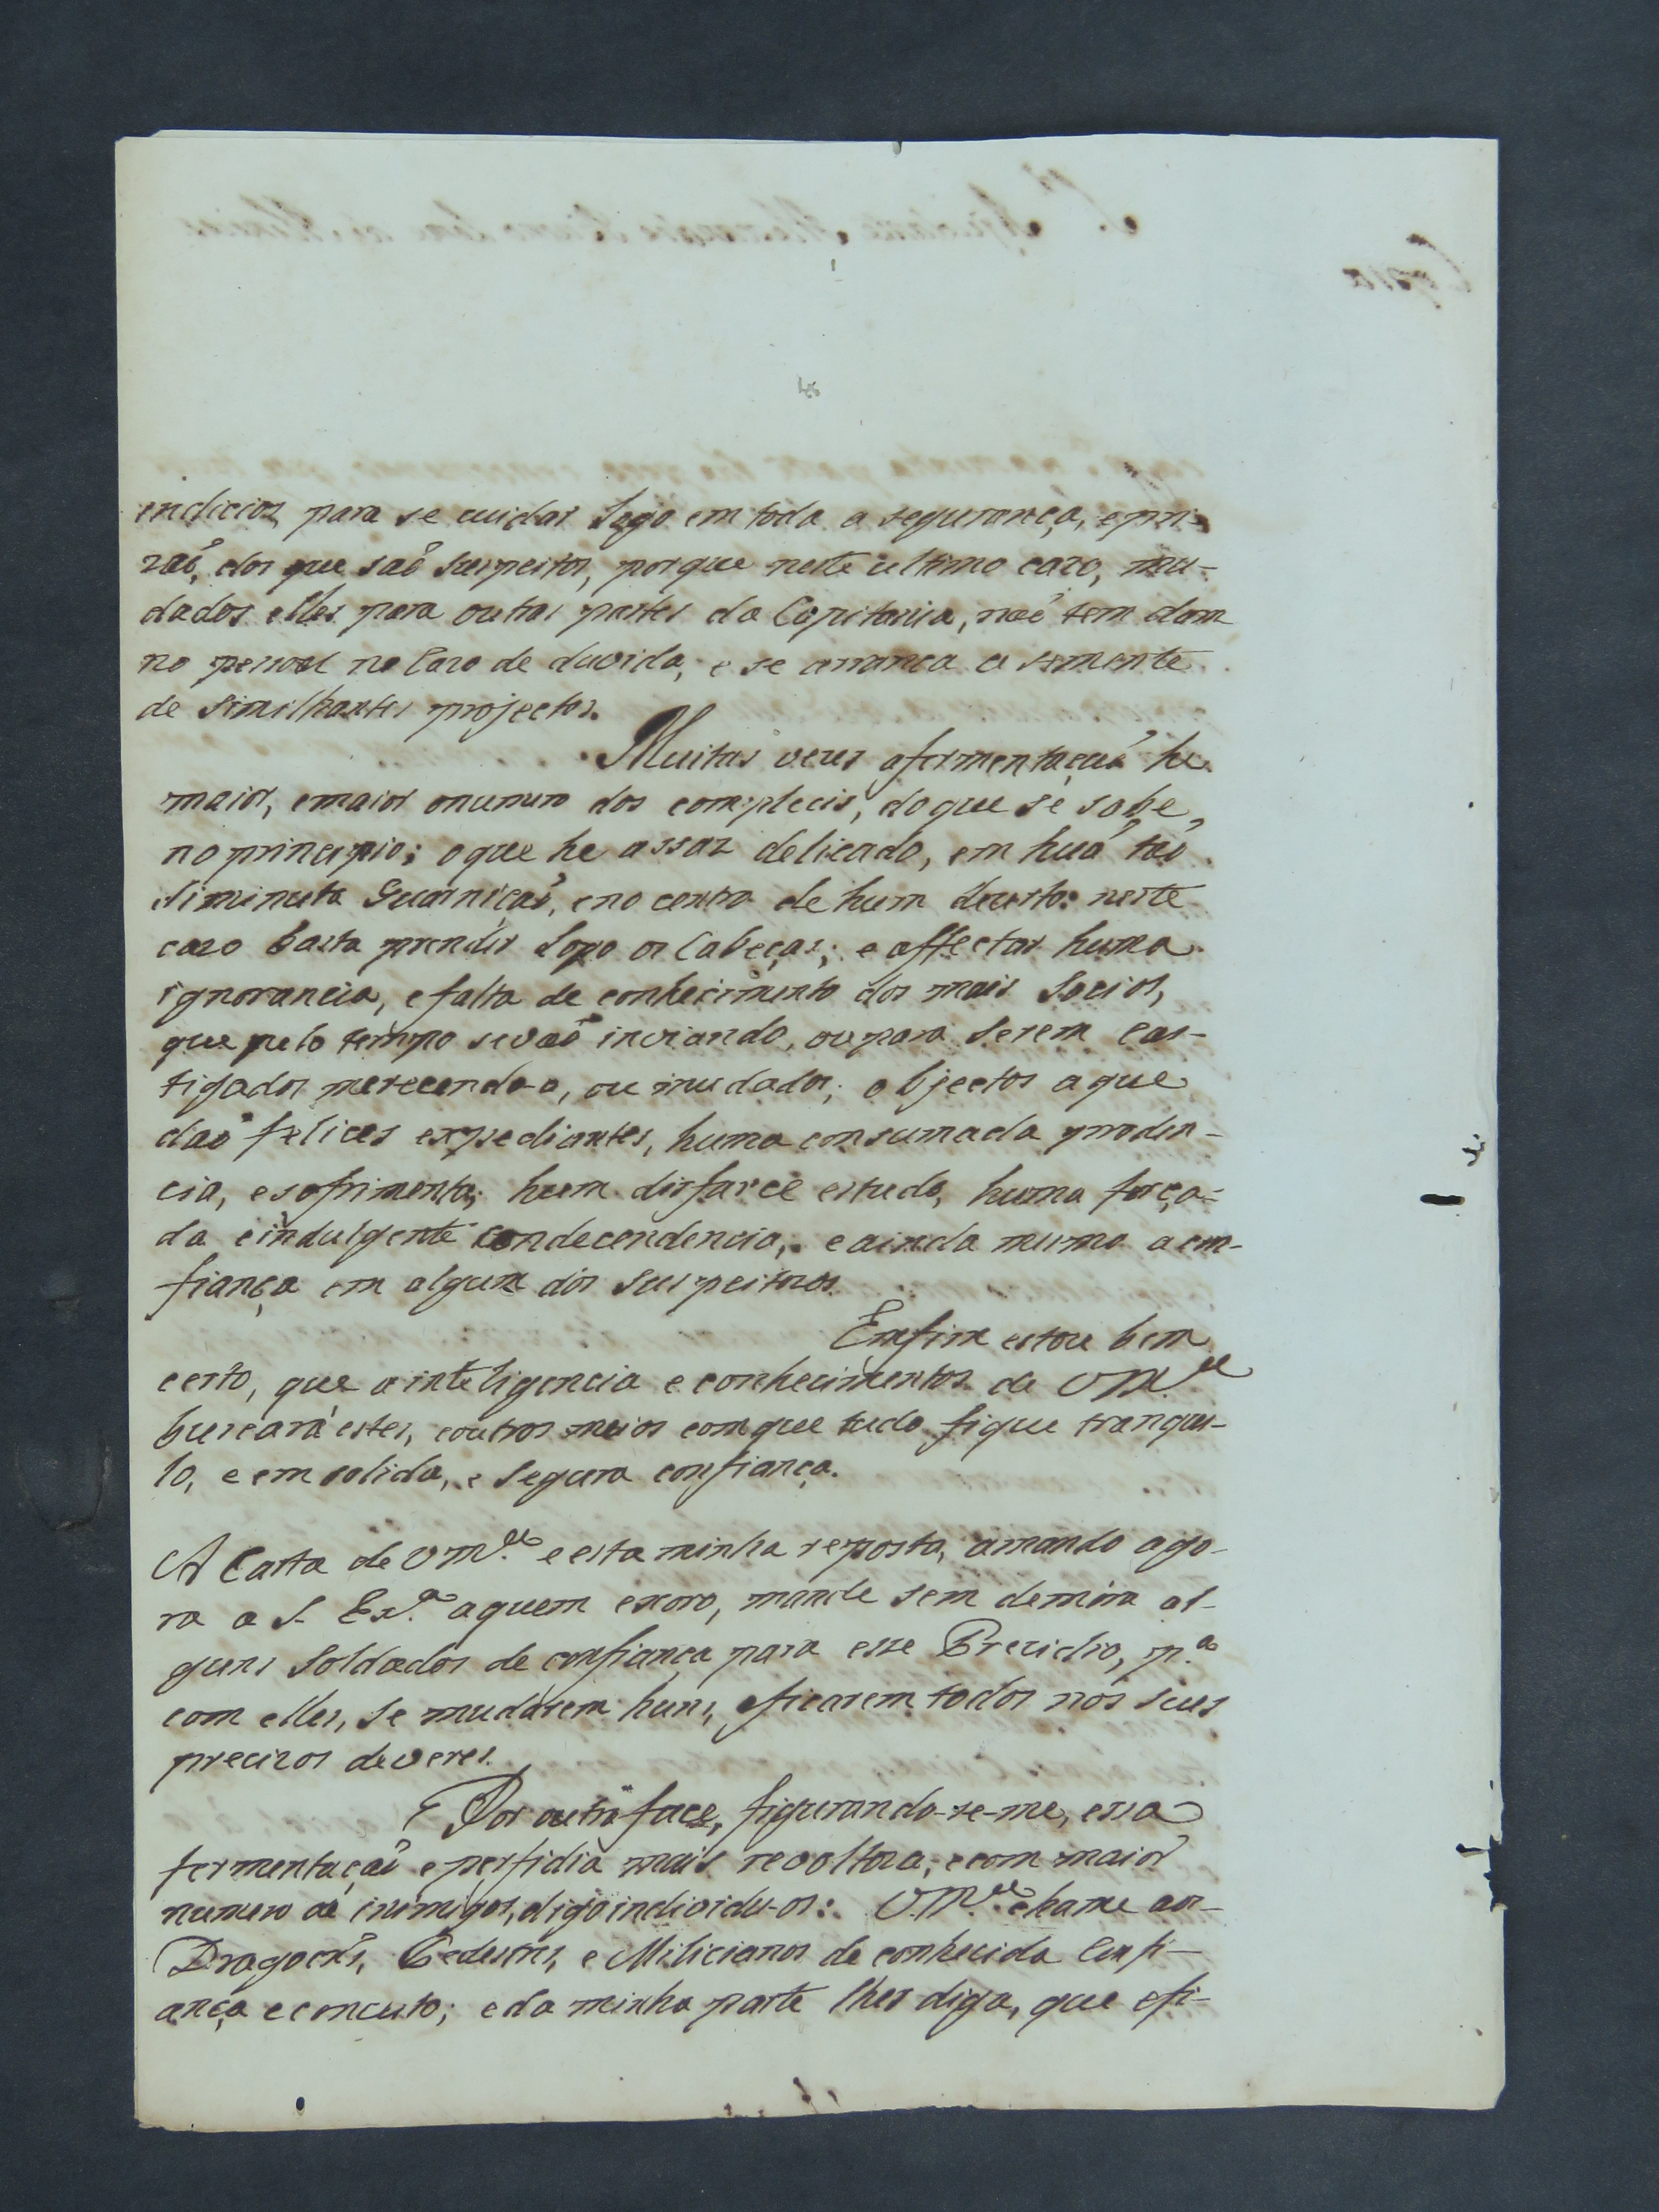 indicios, para se cuidar logo em toda a segurança, epri-
zaõ, dos que saõ suspeitos, porque neste ultimo cazo, mu-
dados elles para outras partes da Capitania, naõ tem dam
no pessoal no Cazo de duvida; e se arranca a semente
de similhantes projectos.
Muitas vezes afermentaçaõ he
maior, emaior onumero dos complecis, doque se sabe,
noprincipio; oque he assaz delicado, em huã taõ
diminuta Guarniçaõ, eno centro de hum dezerto: neste
cazo basta prender logo os Cabeças; e affectar huma
ignorancia, efalta de conhecimento dos mais Socios,
que pelo tempo sevaõ inviando, oupara serem cas-
tigados merecendo-o, ou mudados; objectos aque
daõ felices expediantes, huma consumada pruden-
cia, esofrimento; hum disfarce estudo, huma força-
da eindulgente condecendencia, eainda mesmo a com-
fiança em algum dos suspeitozos.
Emfim estou bem
certo, que ainteligencia e conhecimentos de VM.ce
buscará estes, eoutros meios comque tudo fique tranqui-
lo, e em solida, e segura confiança.
A Carta de VM.ce e esta minha reposta, amando ago-
ra a S. Ex.a aquem exoro, mande sem demora al-
guns Soldados de confiança para esse Prezidio, p.a
com elles, se mudarem huns, eficarem todos nos seus
precizos deveres.
Por outra face, figurando-se-me, essa
fermentaçaõ eperfidia mais revoltoza; ecom maior
numero de inimigos, digo individu-os: VM.ce chame aos
Dragoens, Pedestres, e Milicianos de conhecida Confi-
ança econceito; eda minha parte lhes diga, que efi-